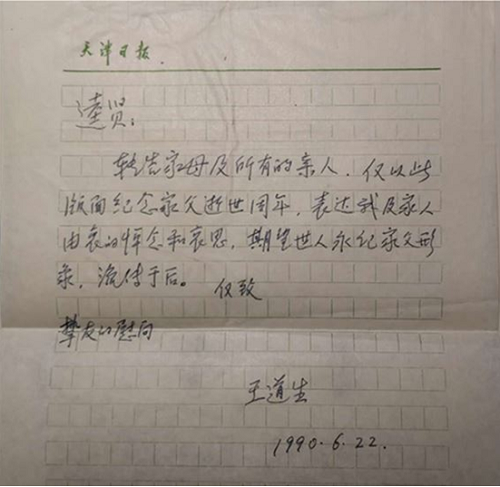 天津日报
逵贤：
转告家母及所有的亲人，仅以此
版面纪念家父逝世周年，表达我及家人
由衷的悼念和哀思，期望世人永纪家父形
象，流传于后。 仅致
挚友的慰问
王道生
1990.6.22.